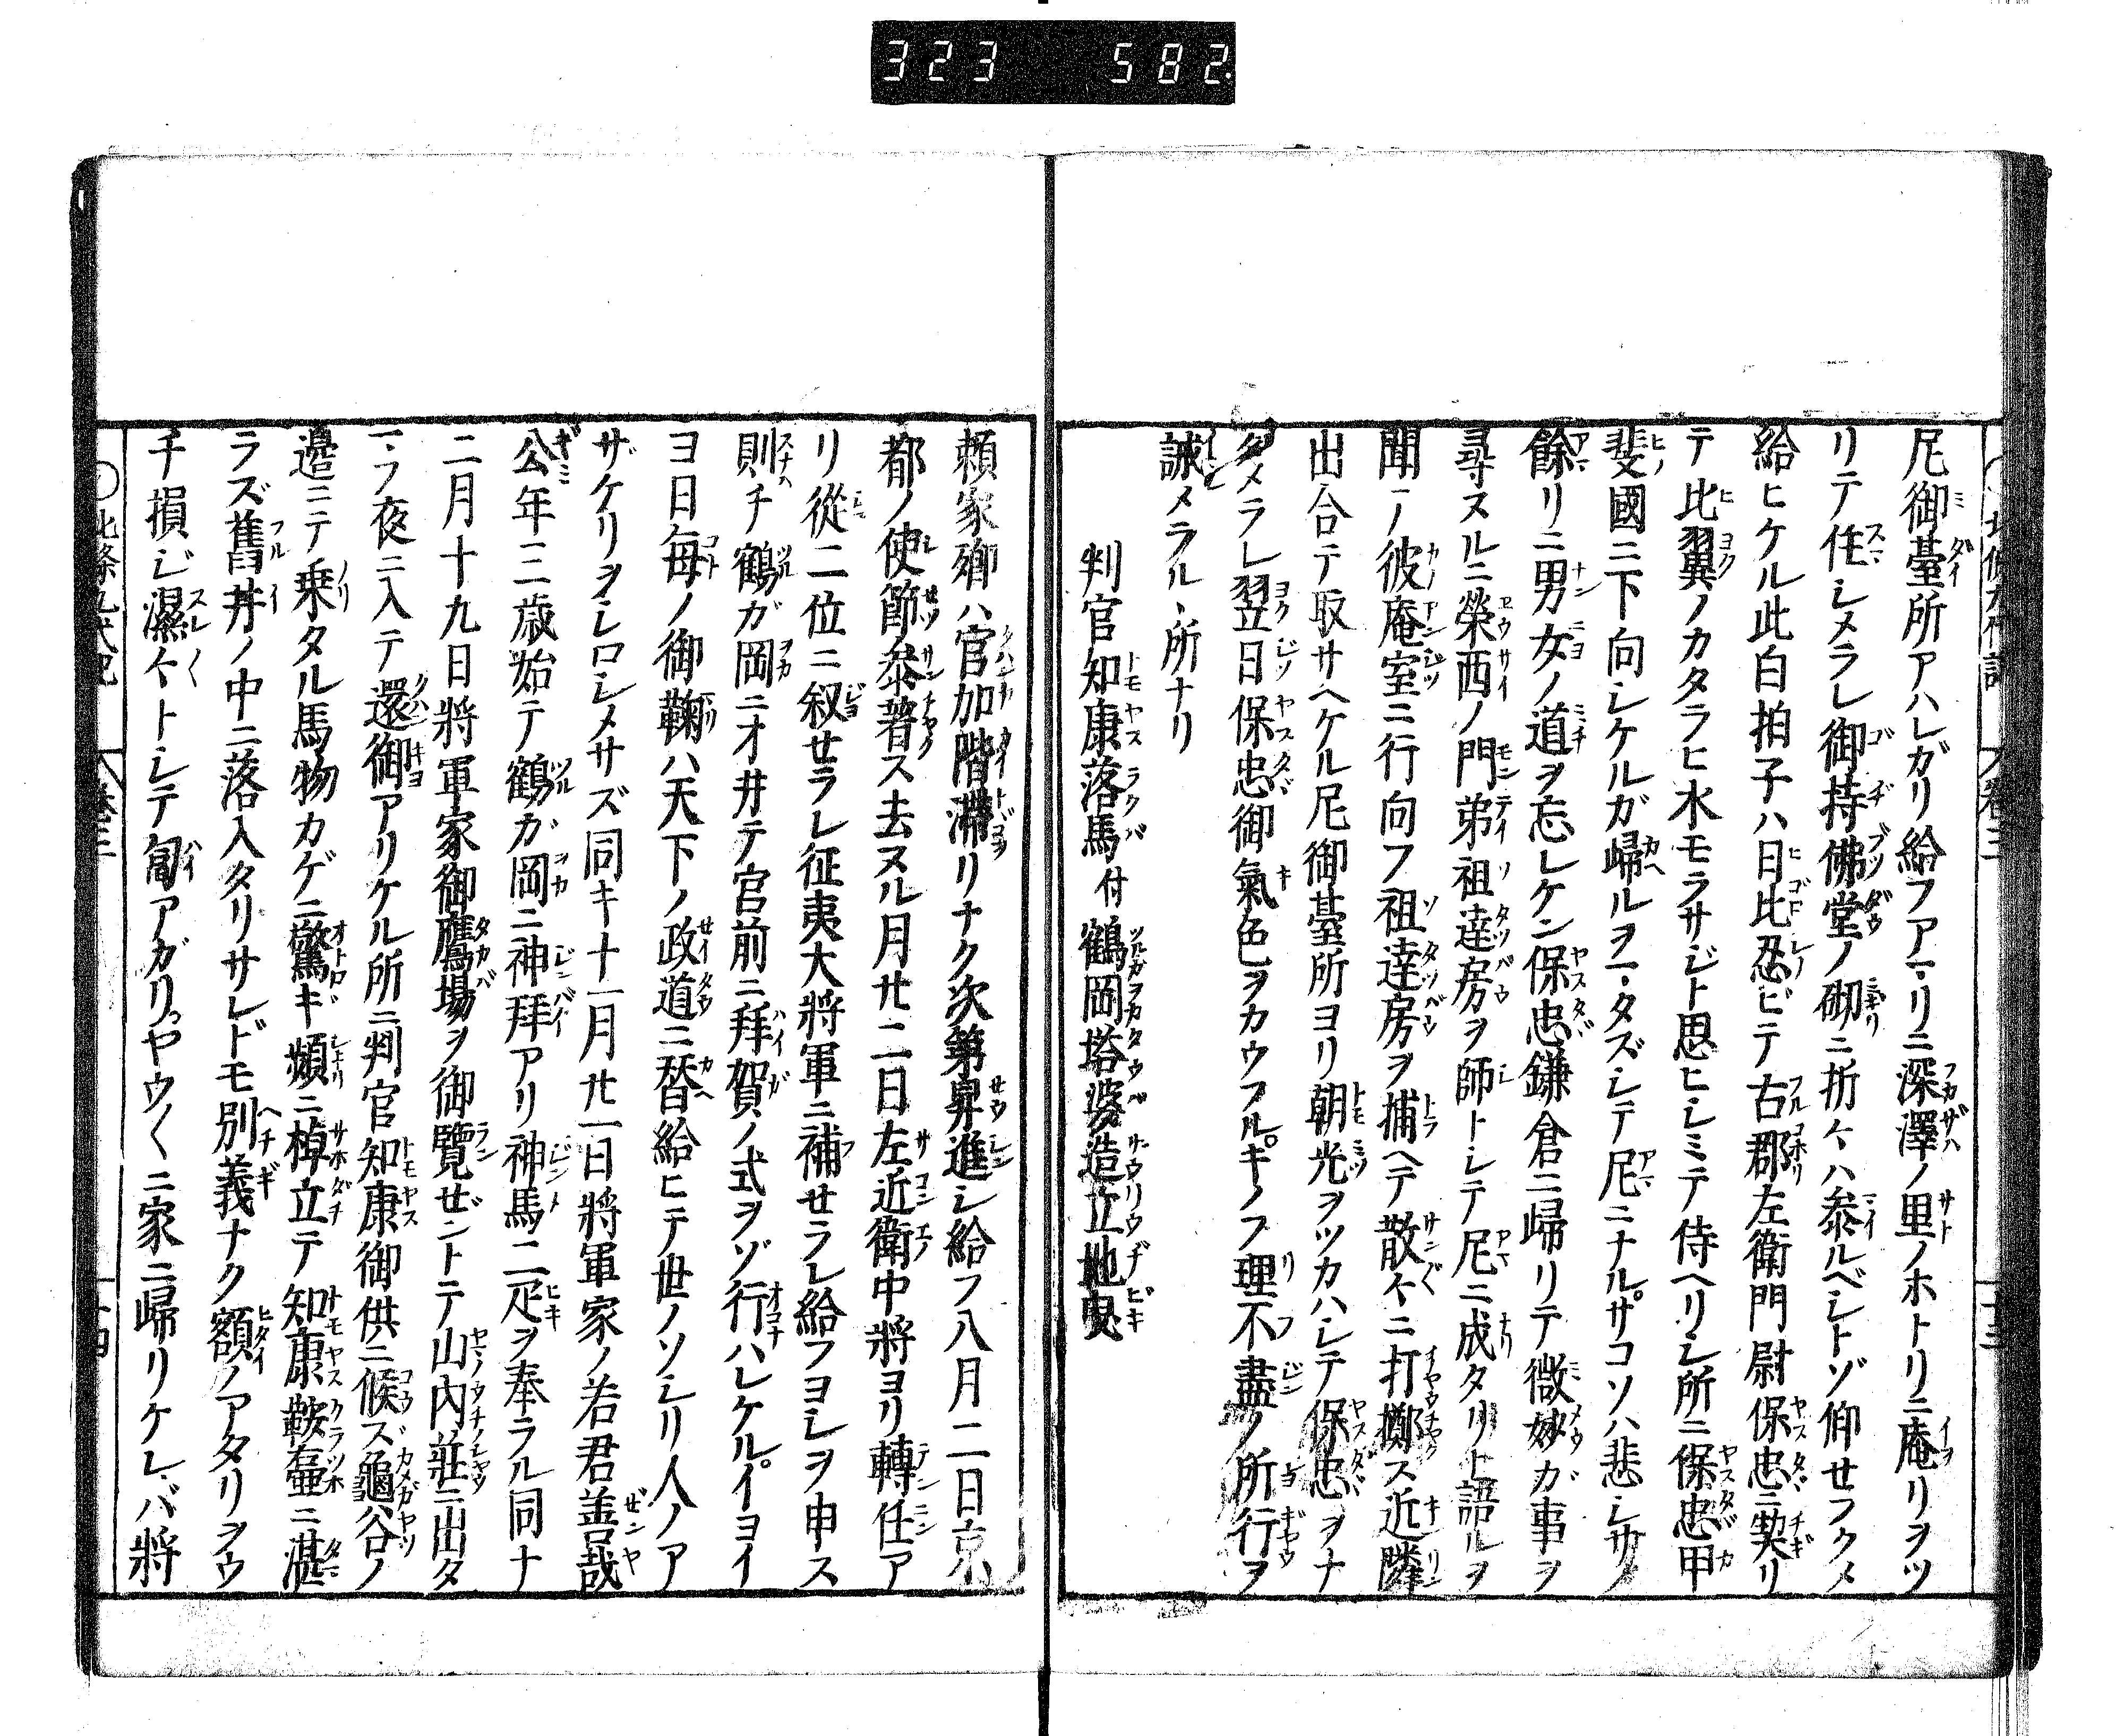 323 582
尼御臺所アハレガリ給フアマリニ深澤ノ里ノホトリニ庵リヲツ
リテ住シメラレ御持佛堂ノ砌ニ折々ハ叅ルベシトゾ仰セフクメ
給ヒケル此白拍子ハ日比忍ビテ古郡左衛門尉保忠ニ契リ
テ比翼ノカタラヒ水モラサジト思ヒシミテ侍ヘリシ所ニ保忠甲
斐國ニ下向シケルガ歸ルヲマタズシテ尼ニナルサコソハ悲シサノ
餘リニ男女ノ道ヲ忘レケン保忠鎌倉ニ歸リテ微妙ガ事ヲ
尋ヌルニ榮西ノ門弟祖達房ヲ師トシテ尼ニ成タリト語ルヲ
聞テ彼庵室ニ行向フ祖達房ヲ捕ヘテ散々ニ打擲ス近隣
出合テ取サヘケル尼御臺所ヨリ朝光ヲツカハシテ保忠ヲナ
タメラレ翌日保忠御氣色ヲカウフルキノフ理不盡ノ所行ヲ
誡メラルヽ所ナリ
判官知康落馬付鶴岡塔婆造立地曳
頼家卿ハ官加階滯リナク次第昇進シ給フ八月二日京
都ノ使節叅著ス去ヌル月廿二日左近衛中將ヨリ轉任ア
リ從二位ニ叙セラレ征夷大將軍ニ補セラレ給フヨシヲ申ス
則チ鶴ガ岡ニオ井テ宮前ニ拜賀ノ式ヲゾ行ハレケルイヨイ
ヨ日毎ノ御鞠ハ天下ノ政道ニ替給ヒテ世ノソシリ人ノア
ザケリヲシロシメサズ同キ十一月廿一日將軍家ノ若君善哉
公年三歳始テ鶴ガ岡ニ神拜アリ神馬二疋ヲ奉ラル同十
二月十九日將軍家御鷹場ヲ御覽ゼントテ山内莊ニ出タ
マフ夜ニ入テ還御アリケル所ニ判官知康御供ニ候ズ龜谷ノ
邊ニテ乗タル馬物カゲニ驚キ頻ニ棹立テ知康鞍壷ニ湛
ラズ舊井ノ中ニ落入タリサレドモ別義ナク額ノアタリヲウ
チ損ジ濕々トシテ匐アガリヤウ〱ニ家ニ歸リケレバ將
北條九代記 卷三